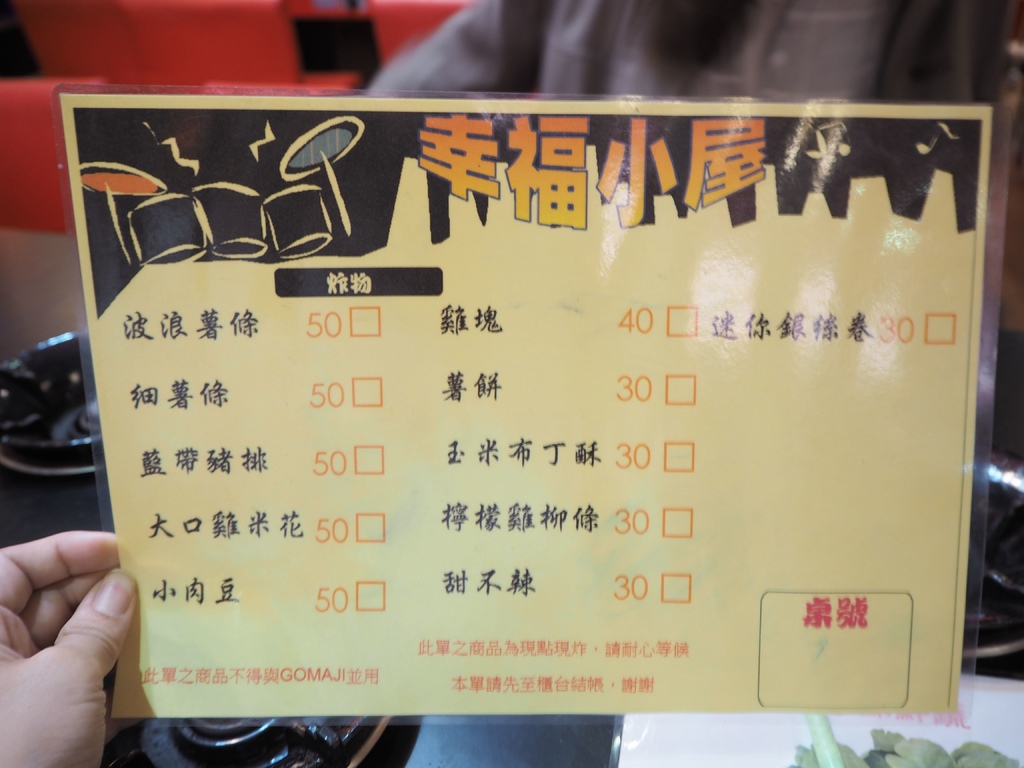 幸福小屋
炸物
波浪薯條 50□ 雞塊 40□ 迷你銀絲卷 30□
細薯條 50□ 薯餅 30□
藍帶豬排 50□ 玉米布丁酥 30□
大口雞米花 50□ 檸檬雞柳條 30□
小肉豆 50□ 甜不辣 30□
桌號
此單之商品為現點現炸，請耐心等候
此單之商品不得與GOMAJI並用
本單請先至櫃台結帳，謝謝